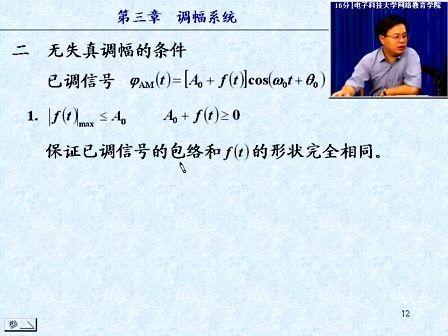 第三章 调幅系统
16分|电子科技大学网络教育学院
二 无失真调幅的条件
已调信号 φ_AM(t)=[A₀+f(t)]cos(ω₀t+θ₀)
1. |f(t)|_max ≤ A₀ A₀+f(t)≥0
保证已调信号的包络和 f(t) 的形状完全相同。
12